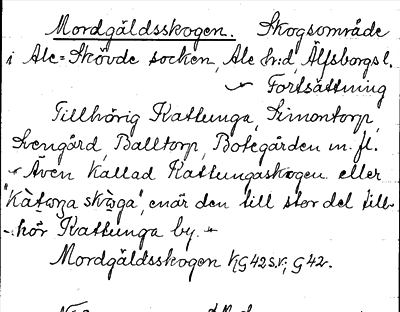 Mordgäldsskogen. Skogsområde
i Ale-Skövde socken, Ale hrd, Älfsborgs l.
Fortsättning
Tillhörig Kattunga, Simontorp,
Svengård, Balltorp, Botegården m. fl.
Även kallad Kattungaskogen eller
"Kàtɷŋa skɷ̀ga", enär den till stor del till-
-hör Kattunga by.
Mordgäldsskogen G42 s.v., G42.